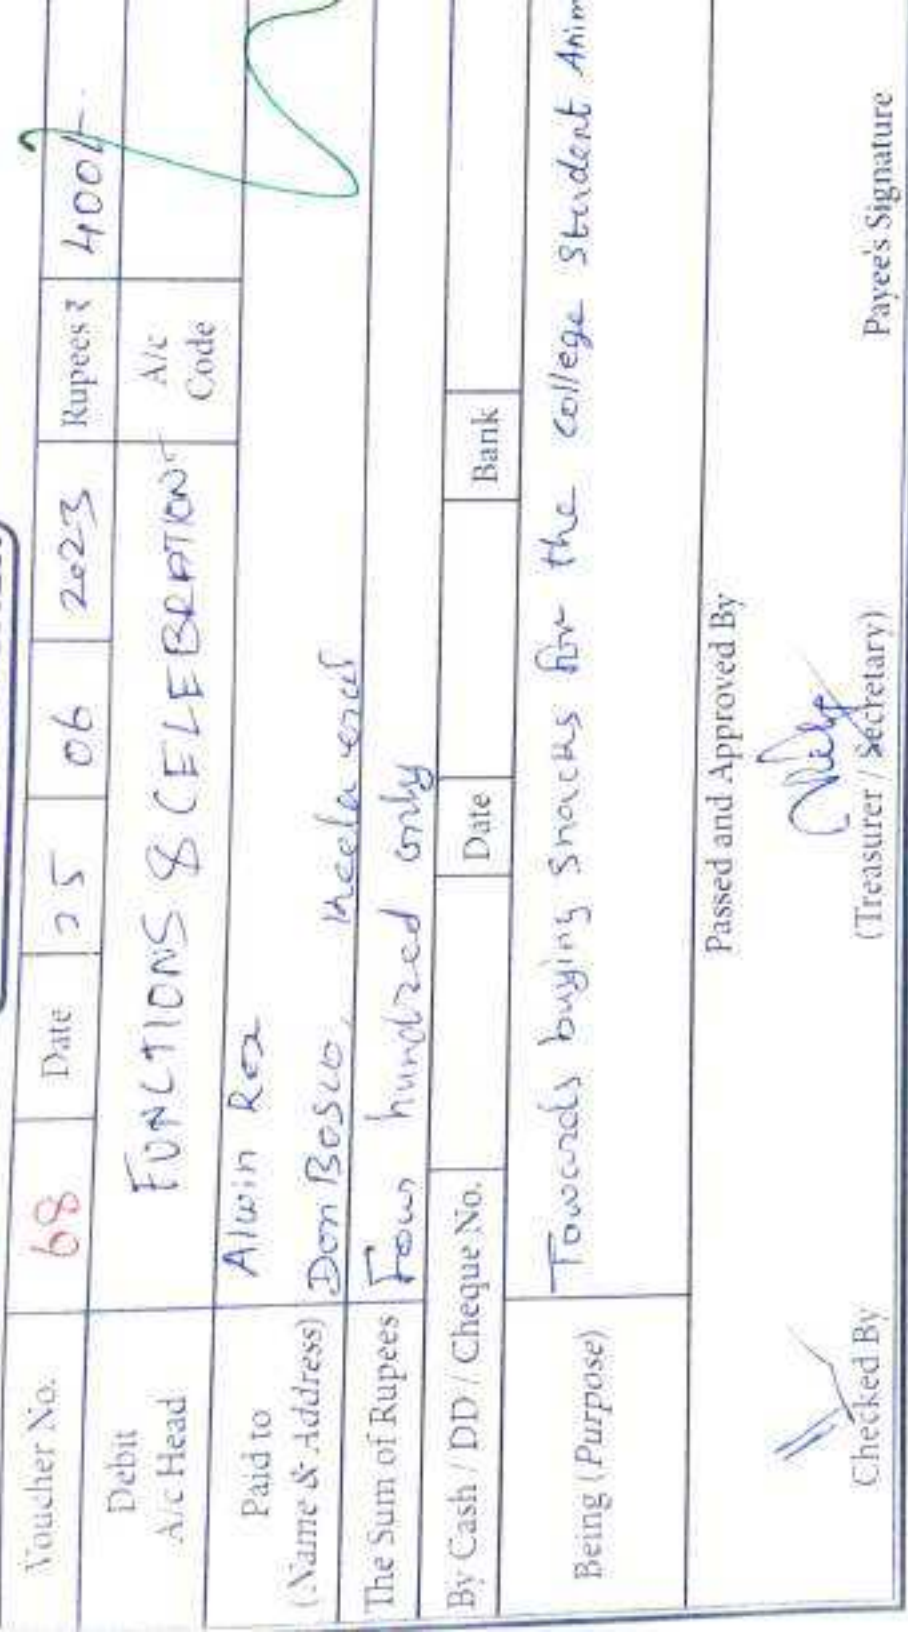 Voucher No. 68 Date 25 06 2023 Rupees ₹ 400/-
Debit A/c Head FUNCTIONS & CELEBRATION A/c Code
Paid to Alwin Rex
(Name & Address) Don Bosco,
The Sum of Rupees Four hundred only
By Cash / DD / Cheque No. Date Bank
Being (Purpose) Towards buying snacks for the college student Anim
Passed and Approved By
Checked By (Treasurer / Secretary) Payee's Signature